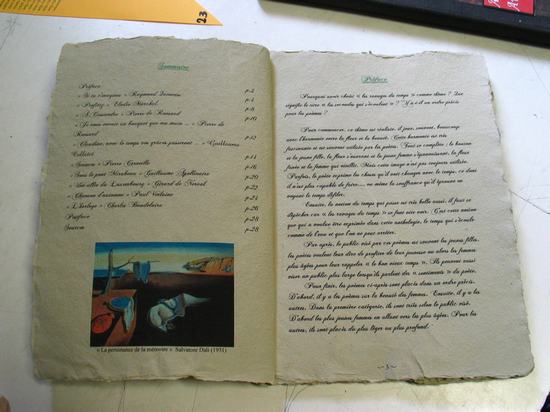 23
Sommaire
Préface p.3
« Si tu t'imagines » Raymond Queneau p.4
« Profitez » Elodie p.8
« A Cassandre » Pierre de Ronsard p.10
« Je vous envoie un bouquet que ma main ... » Pierre de
Ronsard p.12
« Claudine, avec le temps vos grâces passeront ... » Guillaume
Colletet p.14
« Stances » Pierre Corneille p.16
« Sous le pont Mirabeau » Guillaume Apollinaire p.20
« Une allée du Luxembourg » Gérard de Nerval p.22
« Chanson d'automne » Paul Verlaine p.24
« L'horloge » Charles Baudelaire p.26
Postface p.28
Sources p.28
« La persistance de la mémoire ». Salvatore Dali (1931)
Préface
Pourquoi avoir choisi « les ravages du temps » comme thème ? Que
signifie le titre « les secondes qui s'écoulent » ? Y a-t-il un ordre précis
pour les poèmes ?
Pour commencer, ce thème est réaliste, il joue, souvent, beaucoup
avec l'harmonie entre la fleur et la beauté. Cette harmonie est très
fascinante et est souvent utilisée par les poètes. Tout se complète : la beauté
et la jeune fille, la fleur s'ouvrant et la jeune femme s'épanouissant, la fleur
fanée et la femme qui vieillit. Mais cette image n'est pas toujours utilisée.
Parfois, le poète exprime les choses qu'il veut changer avec le temps, ce dont
il n'est plus capable de faire..., ou même la souffrance qu'il éprouve en
voyant le temps défiler.
Ensuite, la notion du temps qui passe est très belle aussi, il faut se
dépêcher car « les ravages du temps » se font vite voir. C'est cette notion
que j'ai voulue être exprimée dans cette anthologie, le temps qui s'écoule
comme de l'eau et que l'on ne peut arrêter.
Par après, le public visé par ces poèmes est souvent les jeunes filles,
les poètes veulent leur dire de profiter de leur jeunesse ou alors les femmes
plus âgées pour leur rappeler « le bon vieux temps ». Ils peuvent aussi
viser un public plus large lorsqu'ils parlent des « sentiments » du poète.
Pour finir, les poèmes ci-après sont placés dans un ordre précis.
D'abord, il y a les poèmes sur la beauté des femmes. Ensuite, il y a les
autres. Dans la première catégorie, ils sont triés selon le public visé.
D'abord les plus jeunes femmes en allant vers les plus âgées. Pour les
autres, ils sont placés du plus léger au plus profond.
~3~